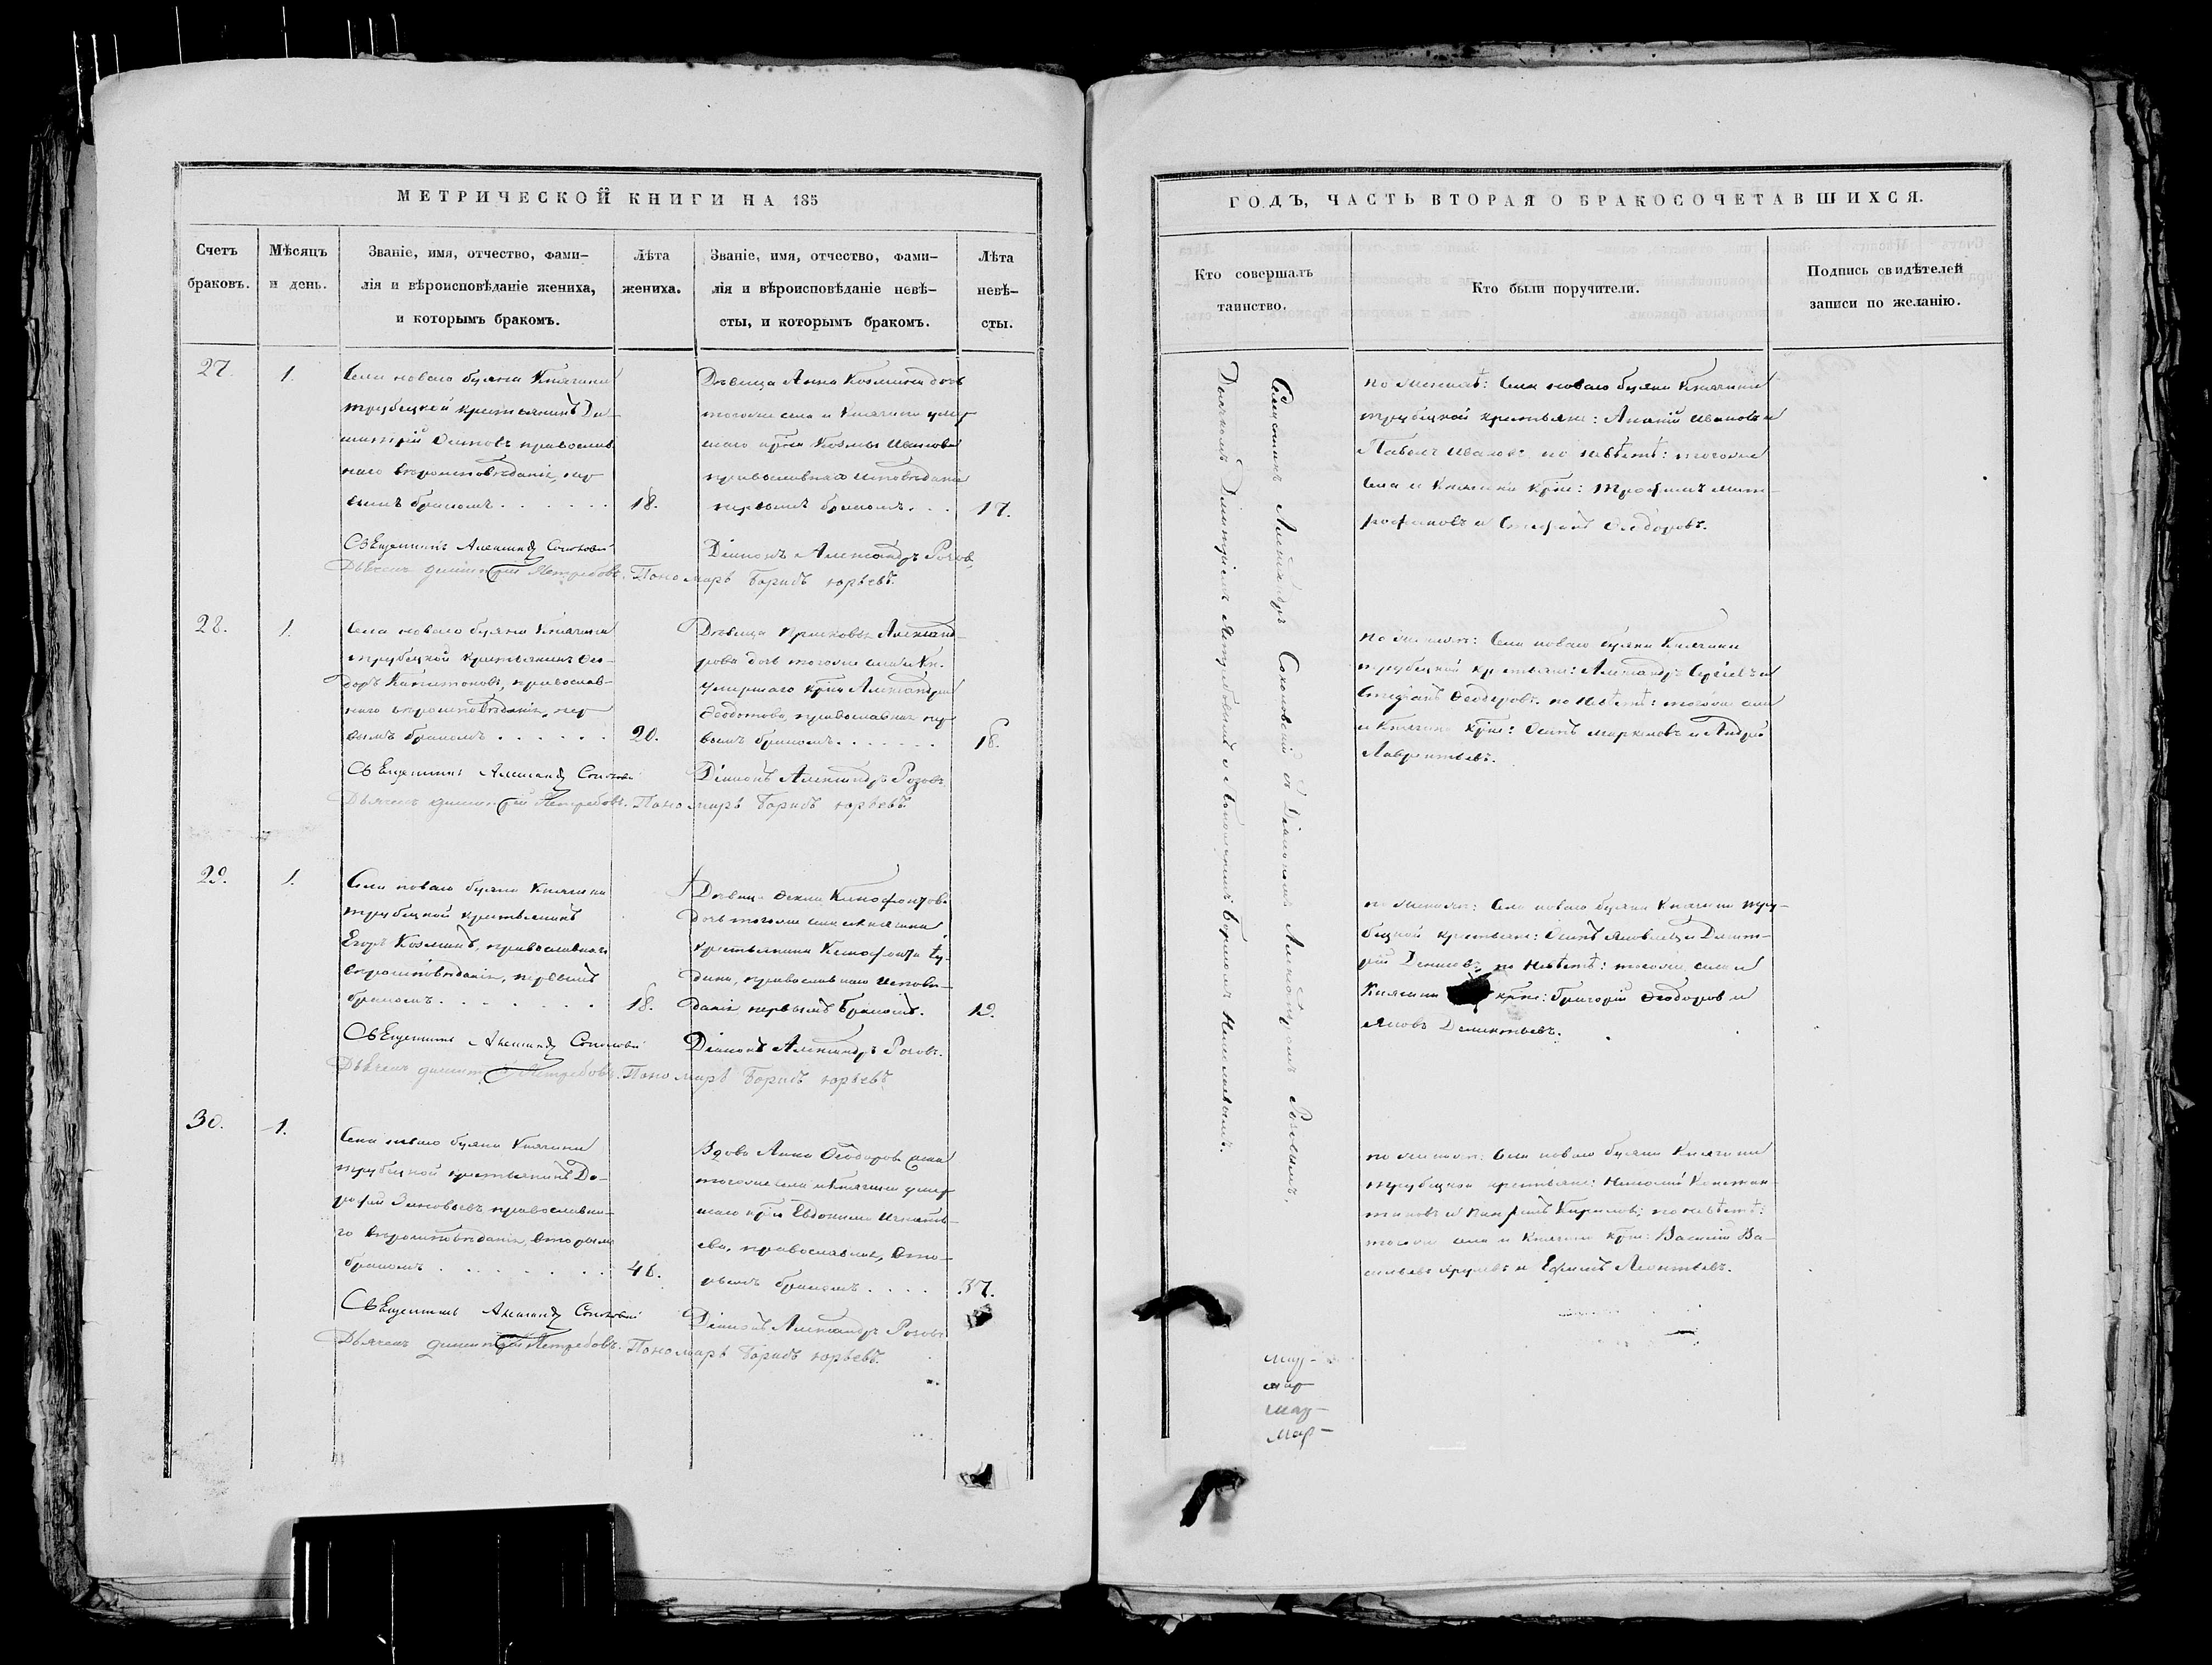 МЕТРИЧЕСКОЙ КНИГИ НА 185
Счетъ браковъ.
Мѣсяцъ и день.
Званіе, имя, отчество, фами-
лія и вѣроисповѣданіе жениха,
и которымъ бракомъ.
Лѣта жениха.
Званіе, имя, отчество, фами-
лія и вѣроисповѣданіе невѣ-
сты, и которымъ бракомъ.
Лѣта невѣ-
сты.
27.
1.
Села новаго буяна Княгини
трубецкой крестьянинъ Ди-
митрій Осиповъ православ
наго вѣроисповѣданія, пер
вымъ бракомъ
18.
Дѣвица Анна Козмина дочь
тогоже села и Княгини умер
шаго крна Козмы Иванова
православнаго исповѣданія
первымъ бракомъ
17.
Священникъ Александръ Соколовъ
Діаконъ Александръ Розовъ
Дьячекъ Димитрій Ястребовъ. Пономарь Борисъ Юрьевъ.
28.
1.
Села новаго буяна Княгини
трубецкой крестьянинъ Ѳео-
доръ Капитоновъ, православ-
наго вѣроисповѣданія, пер
вымъ бракомъ
20.
Дѣвица Прасковья Александ-
рова дочь тогоже села и Кн.
умершаго крна Александра
Ѳеодотова, православная пер
вымъ бракомъ
18.
Священникъ Александръ Соколовъ
Діаконъ Александръ Розовъ
Дьячекъ Димитрій Ястребовъ. Пономарь Борисъ Юрьевъ.
29.
1.
Села новаго буяна Княгини
трубецкой крестьянинъ
Егоръ Козминъ, православнаго
вѣроисповѣданія, первымъ
бракомъ
18.
Дѣвица Ксенофонтова
дочь тогоже села и княгини
крестьянина Ксенофонта
православнаго исповѣ-
данія первымъ бракомъ.
19.
Священникъ Александръ Соколовъ
Діаконъ Александръ Розовъ.
Дьячекъ Димитрій Ястребовъ. Пономарь Борисъ Юрьевъ
30.
1.
Села новаго буяна Княгини
трубецкой крестьянинъ До-
рофей Зиновьевъ православна-
го вѣроисповѣданія, вторымъ
бракомъ
48.
Вдова Анна Ѳеодорова жена
тогоже села и княгини умер
шаго крна Евдокима Игнать-
ева, православная, вто-
рымъ бракомъ
37.
Священникъ Александръ Соколовъ
Діаконъ Александръ Розовъ
Дьячекъ Димитрій Ястребовъ. Пономарь Борисъ Юрьевъ.
ГОДЪ, ЧАСТЬ ВТОРАЯ О БРАКОСОЧЕТАВШИХСЯ.
Кто совершалъ
таинство.
Кто были поручители.
Подпись свидѣтелей
записи по желанію.
Священникъ Александръ Соколовъ съ Діакономъ Александромъ Розовымъ,
Дьячкомъ Димитріемъ Ястребовымъ и Пономаремъ Борисомъ
по женихѣ: Села новаго буяна Княгини
трубецкой крестьяне: Ананій Ивановъ и
Павелъ Ивановъ. по невѣстѣ: тогоже
села и Княгини крне: Трофимъ Мит-
рофановъ и Стефанъ Ѳеодоровъ.
по женихѣ: Села новаго буяна Княгини
трубецкой крестьяне: Александръ Сергіевъ и
Стефанъ Ѳеодоровъ. по невѣстѣ: тогоже села
и Княгини крне: Осипъ Маркеловъ и Андрей
Лаврентьевъ.
по женихѣ: Села новаго буяна Княгини тру-
бецкой крестьяне: Осипъ Яковлевъ и Димит-
рій Денисовъ, по невѣстѣ: тогоже села и
Княгини крне: Григорій Ѳеодоровъ и
Яковъ Дементьевъ.
по женихѣ: Села новаго буяна Княгини
трубецкой крестьяне: Николай Констан-
тиновъ и Кириловъ; по невѣстѣ:
тогоже села и Княгини крне: Василій Ва-
сильевъ и Ефимъ Леонтьевъ.
мар-
мар
мар-
мар-